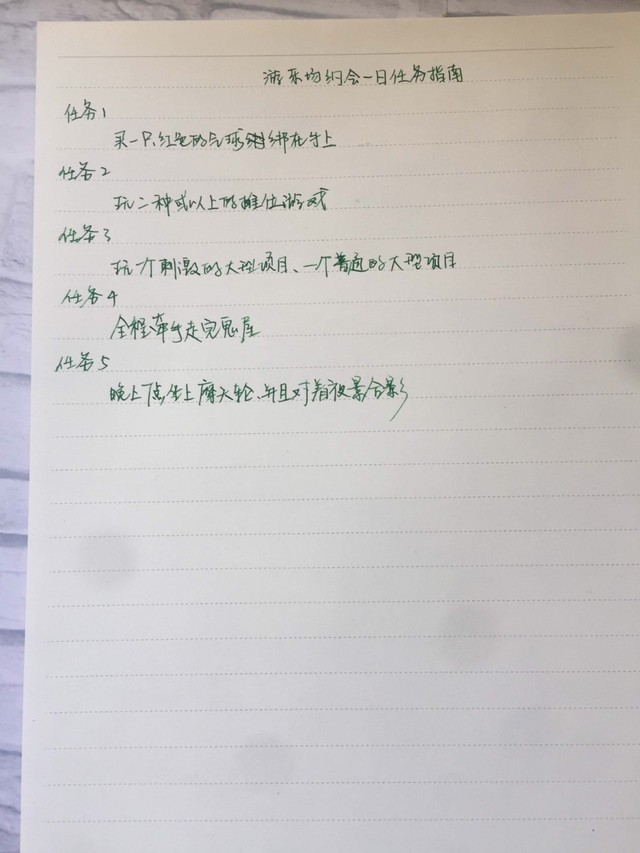 游乐场约会一日任务指南
任务1
买一只红色的气球绑在手上
任务2
玩二种或以上的摊位游戏
任务3
玩一个刺激的大型项目、一个普通的大型项目
任务4
全程牵手走完鬼屋
任务5
晚上 点坐上摩天轮、并且对着夜景合影